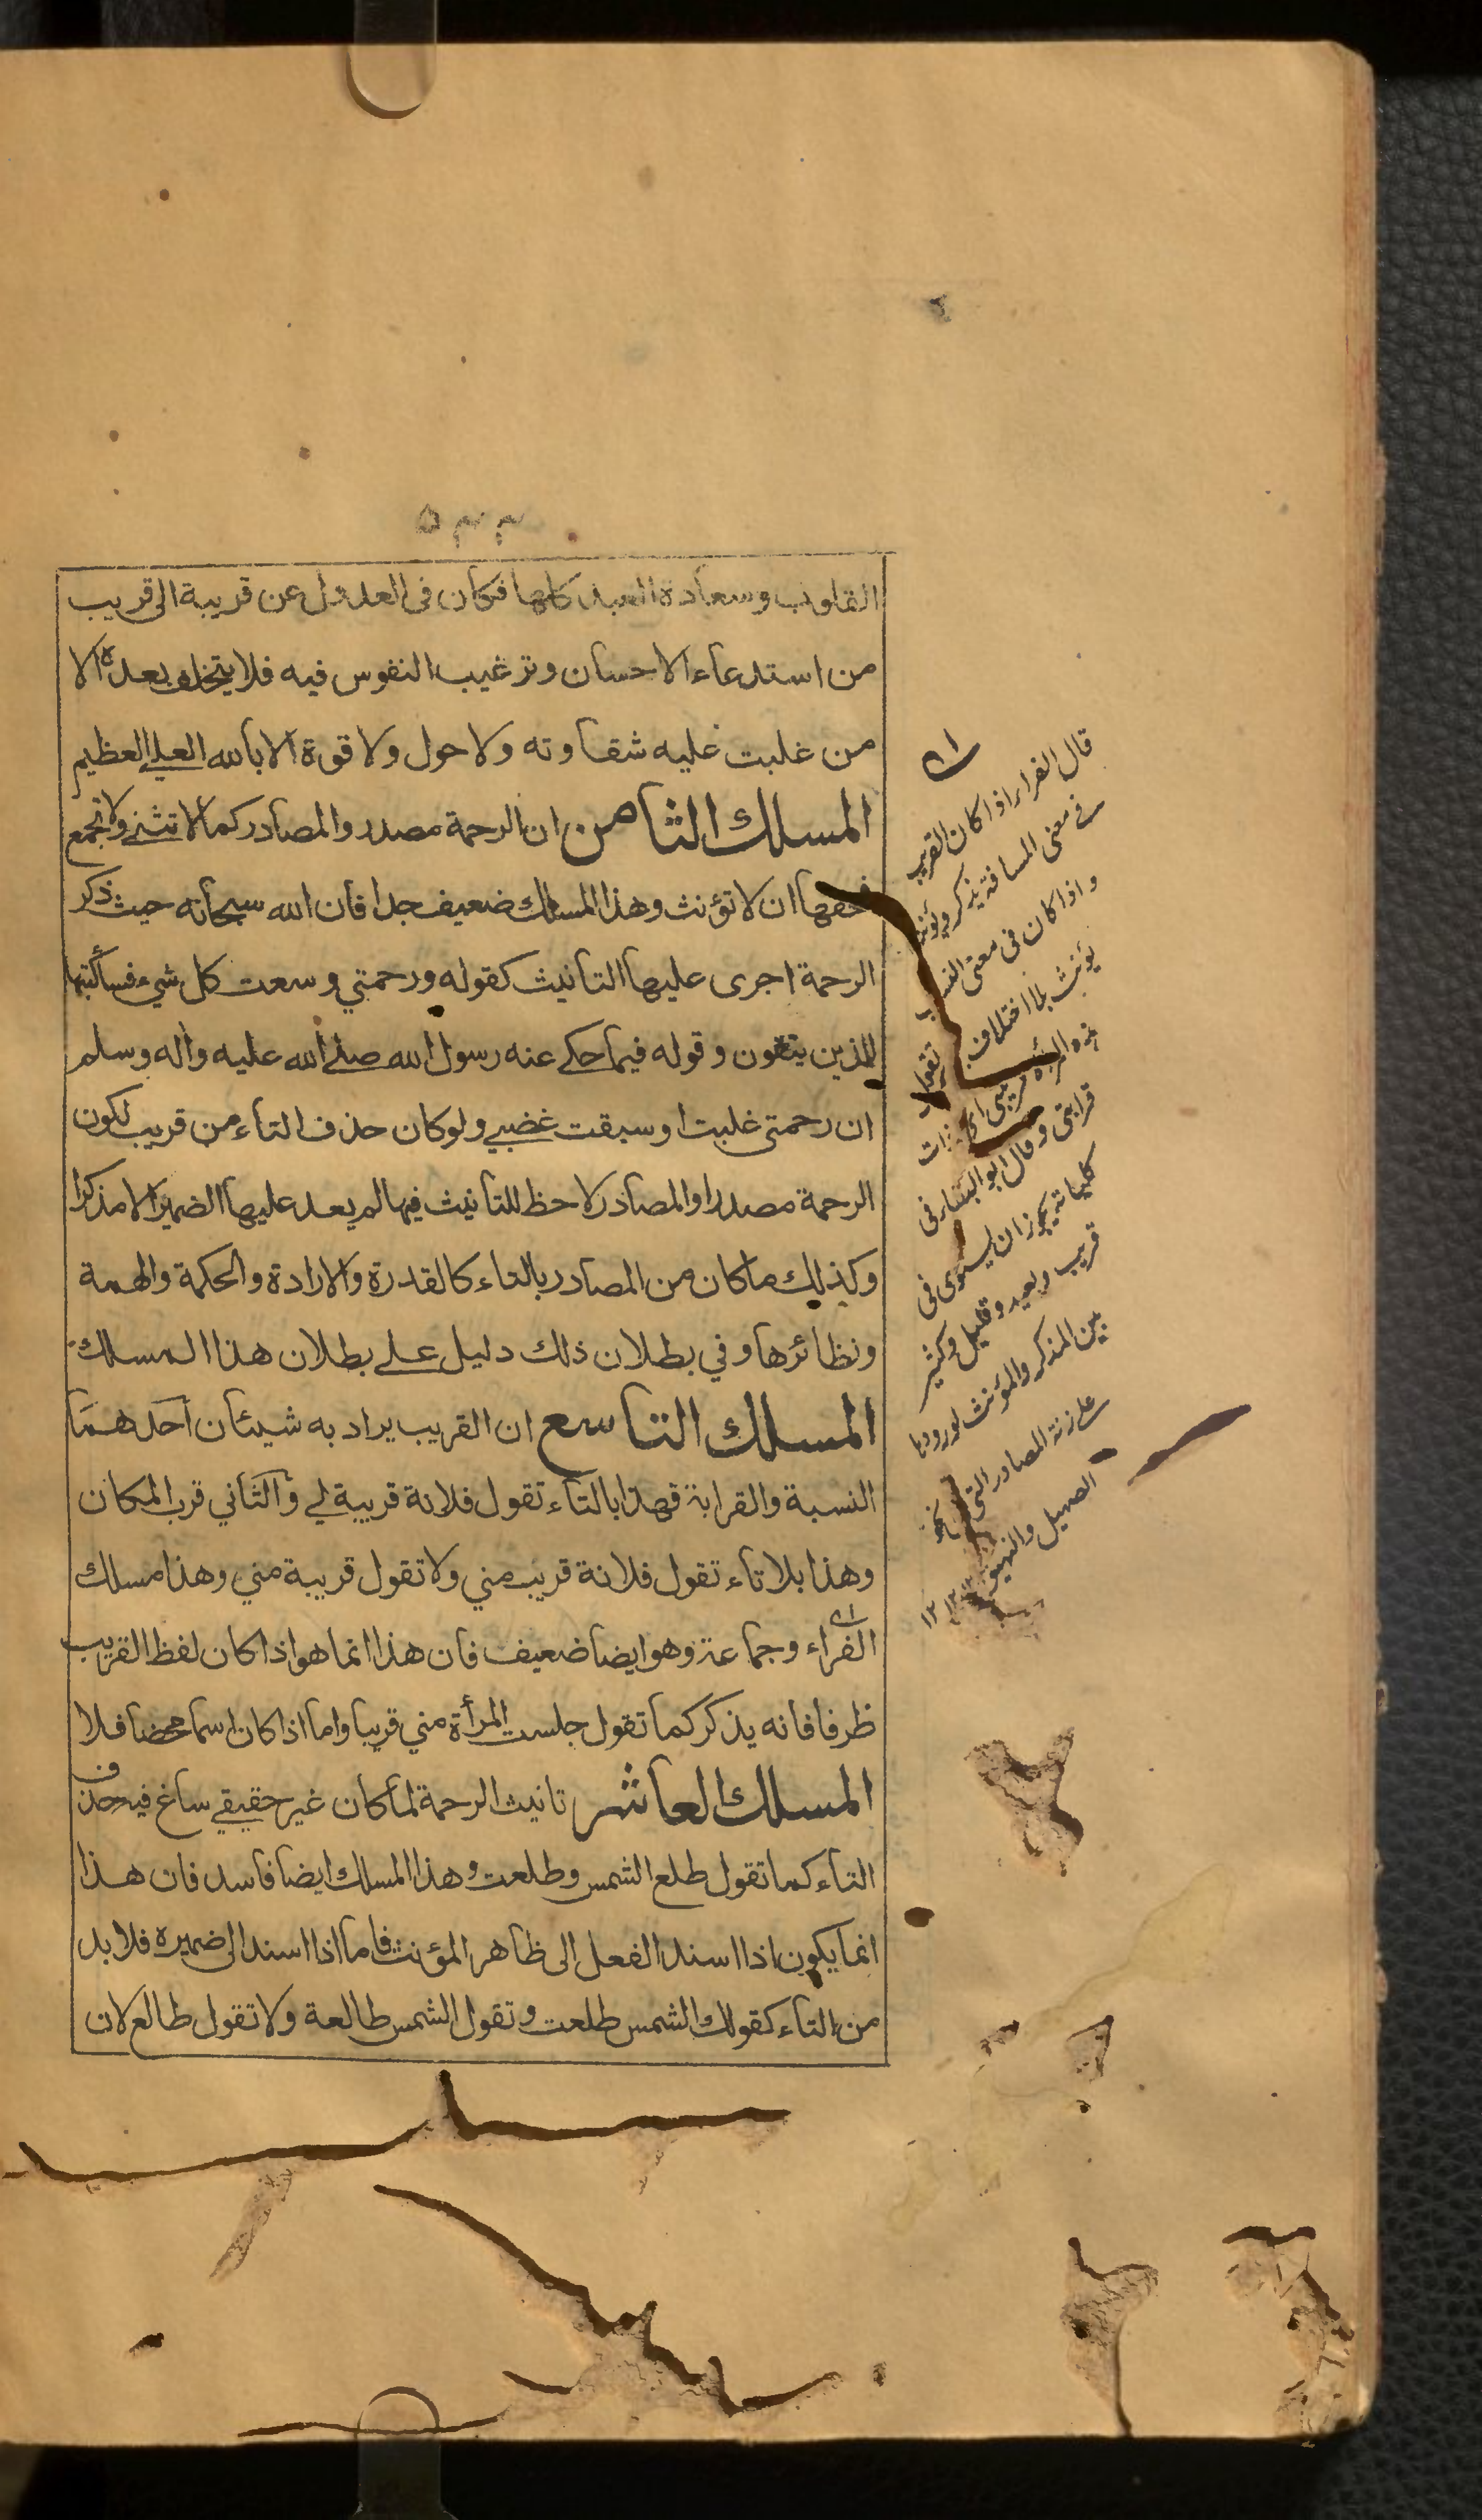 ٥٣٣
القلوب وسعادة العبد كلها فكان فى العدول عن قريبة الى قريب
من استدعاء الاحسان وترغيب النفوس فيه فلا يتخلف بعده الا
من غلبت عليه شقاوته ولا حول ولا قوة الا بالله العلي العظيم
المسلك الثامن ان الرحمة مصدر والمصادر كما لا تثنى ولا تجمع
فحقها ان لا تؤنث وهذا المسلك ضعيف جدا فان الله سبحانه حيث ذكر
الرحمة اجرى عليها التانيث كقوله ورحمتي وسعت كل شيء فسأكتبها
للذين يتقون وقوله فيما حكے عنه رسول الله صلے الله عليه واله وسلم
ان رحمتى غلبت او سبقت غضبي ولو كان حذف التاء من قريب لكون
الرحمة مصدرا والمصادر لا حظ للتأنيث فيها لم يعد عليها الضمير الا مذكرا
وكذلك ما كان من المصادر بالتاء كالقدرة والارادة والحكمة والهمة
ونظائرها وفي بطلان ذلك دليل علے بطلان هذا المسلك
المسلك التاسع ان القريب يراد به شيئان احدهما
النسبة والقرابة فهذا بالتاء تقول فلانة قريبة لي والثاني قرب المكان
وهذا بلا تاء تقول فلانة قريب مني ولا تقول قريبة مني وهذا مسلك
الفراء وجماعة وهو ايضا ضعيف فان هذا انما هو اذا كان لفظ القريب
ظرفا فانه يذكر كما تقول جلست المرأة مني قريبا واما اذا كان اسما محضا فلا
المسلك العاشر تانيث الرحمة لما كان غير حقيقے ساغ فيه حذف
التاء كما تقول طلع الشمس وطلعت وهذا المسلك ايضا فاسد فان هذا
انما يكون اذا اسند الفعل الى ظاهر المؤنث فاما اذا اسند الى ضميره فلا بد
من التاء كقولك الشمس طلعت وتقول الشمس طالعة ولا تقول طالع لان
قال الفراء اذا كان القريب
فے معنى المسافة يذكر ويؤنث
واذا كان فى معنى النسب
يؤنث بلا اختلاف تقول
هذه المرأة قريبتى اى ذات
قرابتى وقال ابو البقاء فى
كلياته يجوز ان يستوى فى
قريب وبعيد وقليل وكثير
بين المذكر والمؤنث لورودها
علے زنة المصادر التى
الصهيل والنهيق ١٢